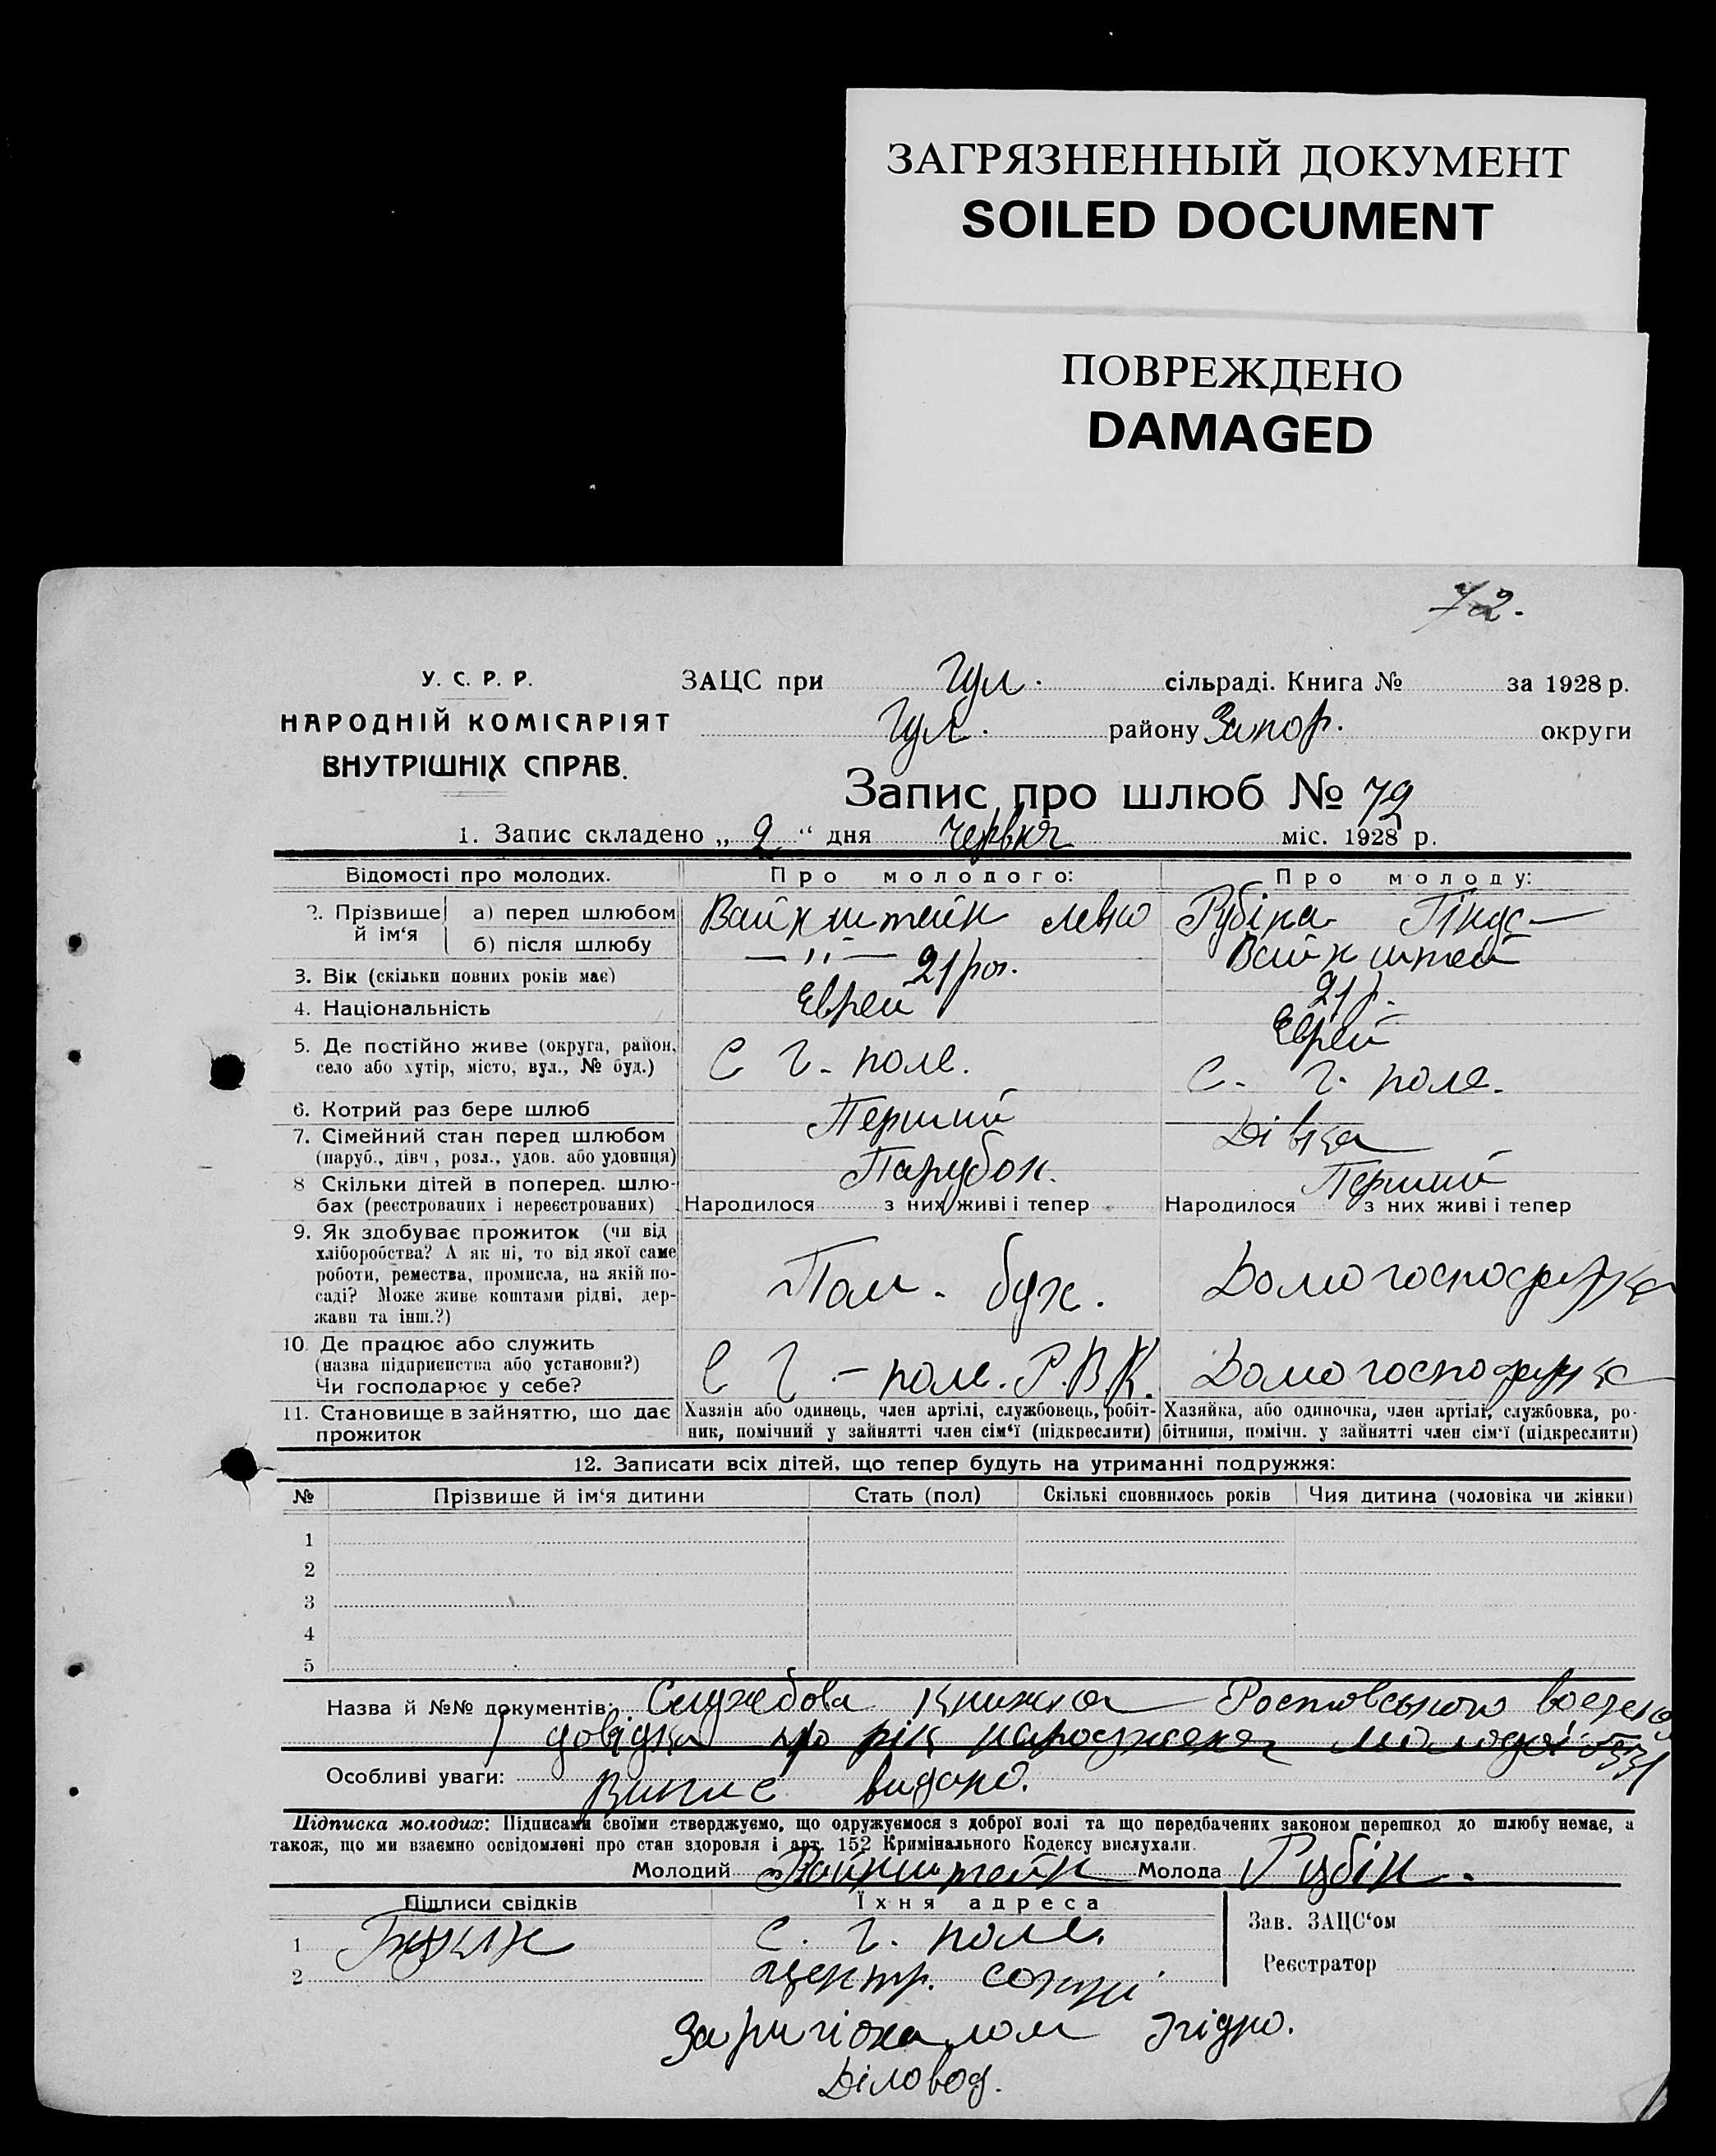 ЗАГРЯЗНЕННЫЙ ДОКУМЕНТ
SOILED DOCUMENT
ПОВРЕЖДЕНО
DAMAGED
72.
У. С. Р. Р.
НАРОДНІЙ КОМІСАРІЯТ
ВНУТРІШНІХ СПРАВ.
ЗАЦС при Гул. сільраді. Книга № за 1928 р.
Гул. району Запор. округи
Запис про шлюб № 72
1. Запис складено „ 2 “ дня червня міс. 1928 р.
Відомості про молодих. Про молодого: Про молоду:
2. Прізвище й ім‘я а) перед шлюбом Вайнштейн Левко Рубіна
б) після шлюбу — ,, — Вайнштей
3. Вік (скільки повних років має) 21 рок. 21 р.
4. Національність Еврей Еврей
5. Де постійно живе (округа, район, село або хутір, місто, вул., № буд.) С Г- поле. С. Г. поле.
6. Котрий раз бере шлюб Перший Дівка
7. Сімейний стан перед шлюбом (паруб., дівч., розл., удов. або удовиця) Парубок. Перший
8 Скільки дітей в поперед. шлюбах (реєстрованих і нереєстрованих) Народилося з них живі і тепер Народилося з них живі і тепер
9. Як здобуває прожиток (чи від хліборобства? А як ні, то від якої саме роботи, ремества, промисла, на якій посаді? Може живе коштами рідні, держави та інш.?) Пом. бух. Домогосподарка
10. Де працює або служить (назва підприємства або установи?) Чи господарює у себе? С Г. – поле. Р.В.К. Домогосподарка
11. Становище в зайняттю, що дає прожиток Хазяїн або одинець, член артілі, службовець, робітник, помічний у зайнятті член сім‘ї (підкреслити) Хазяйка, або одиночка, член артілі, службовка, робітниця, помічн. у зайнятті член сім‘ї (підкреслити)
12. Записати всіх дітей, що тепер будуть на утриманні подружжя:
№ Прізвише й ім‘я дитини Стать (пол) Скількі сповнилось років Чия дитина (чоловіка чи жінки)
1
2
3
4
5
Назва й №№ документів: Службова книжка Ростовського
довідка про рік народження молодої
Особливі уваги: Випис видано.
Підписка молодих: Підписами своїми стверджуємо, що одружуємося з доброї волі та що передбачених законом перешкод до шлюбу немає, а
також, що ми взаємно освідомлені про стан здоровля і арт. 152 Кримінального Кодексу вислухали.
Молодий Вайнштейн Молода Рубін.
Підписи свідків Їхня адреса
Зав. ЗАЦС‘ом
1 С. Г. поле.
Реєстратор
2 центр. сотні
З оригіналом згідно.
Діловод.